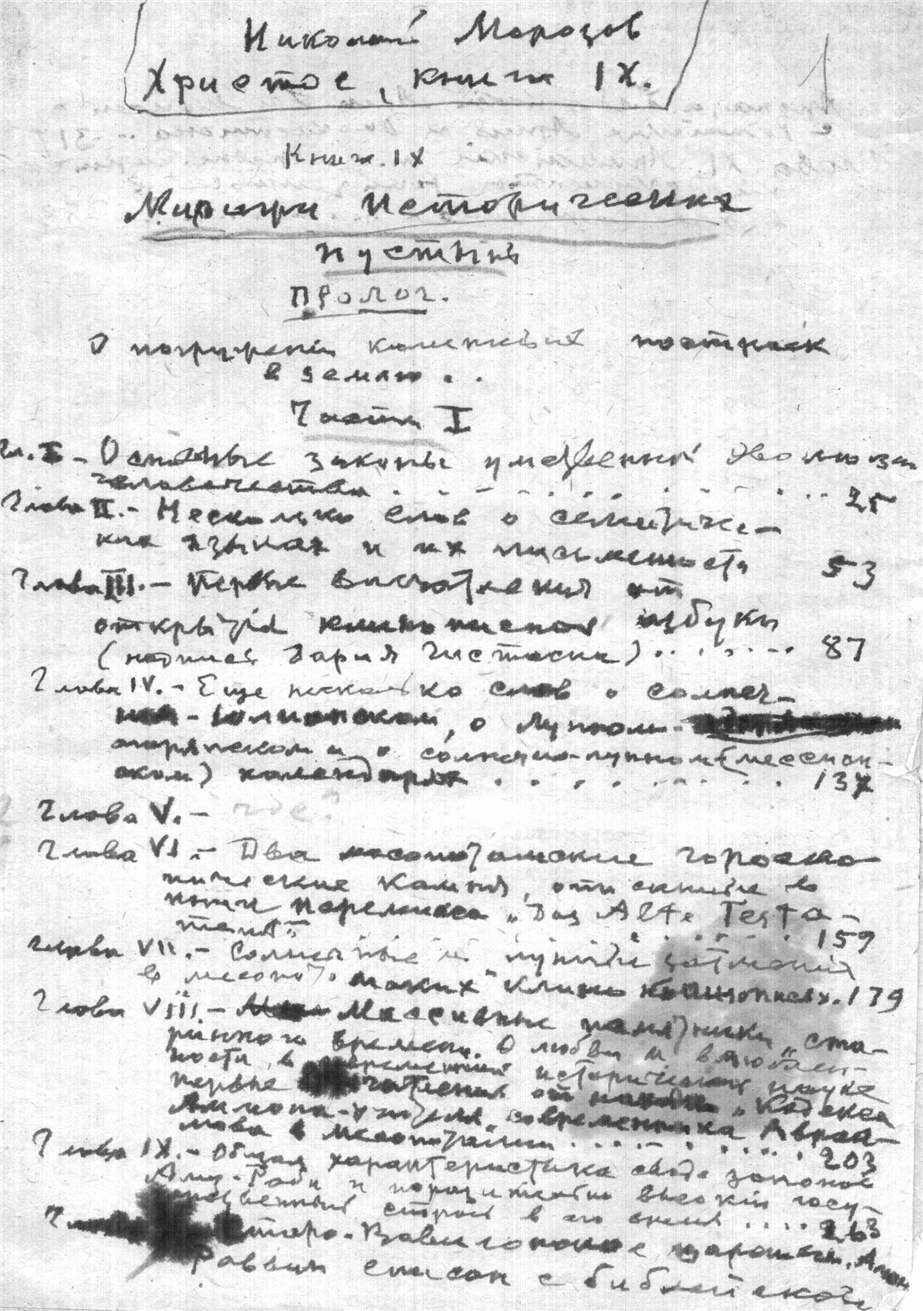 Николай Морозов
Христос, книга IX.
1
Книга IX
Миражи исторических
пустынь
Пролог.
О погружении каменных построек
в землю . .
Часть I
Гл. I - Основные законы умственной эволюции
человечества . . . . . . . . . . 25
Глава II. - Несколько слов о семитиче-
ких языках и их письменности 53
Глава III. - Первые впечатления от
открытия клинописной азбуки
(надписи Дария Гистаспа) . . . . . . 87
Глава IV. - Еще несколько слов о солнеч-
ном - юлианском, о лунном -
о солнечно-лунном (мессиан-
ском) календарях . . . . . . . . 137
Глава V. - где?
Глава VI. - Два месопотамские гороско-
пические камня, отысканные в
книге Иеремиаса „Das Alte Testa-
ment“ . . . . . . . 159
Глава VII. - Солнечные и лунные затмения
в месопотамских клинописях. 179
Глава VIII. - Массивные памятники ста-
ринного времени. О любви и влюблен-
ности в современной исторической науке
первые от „Кодекса
современника Авраа-
мова в Месопотамии . . . . . . 203
Глава IX. - Общая характеристика свода законов
Аму-Раби и поразительно высокий госу-
дарственный строй в его время . . . . 263
Старо-Вавилонское царство.
Раввин списан с библейской